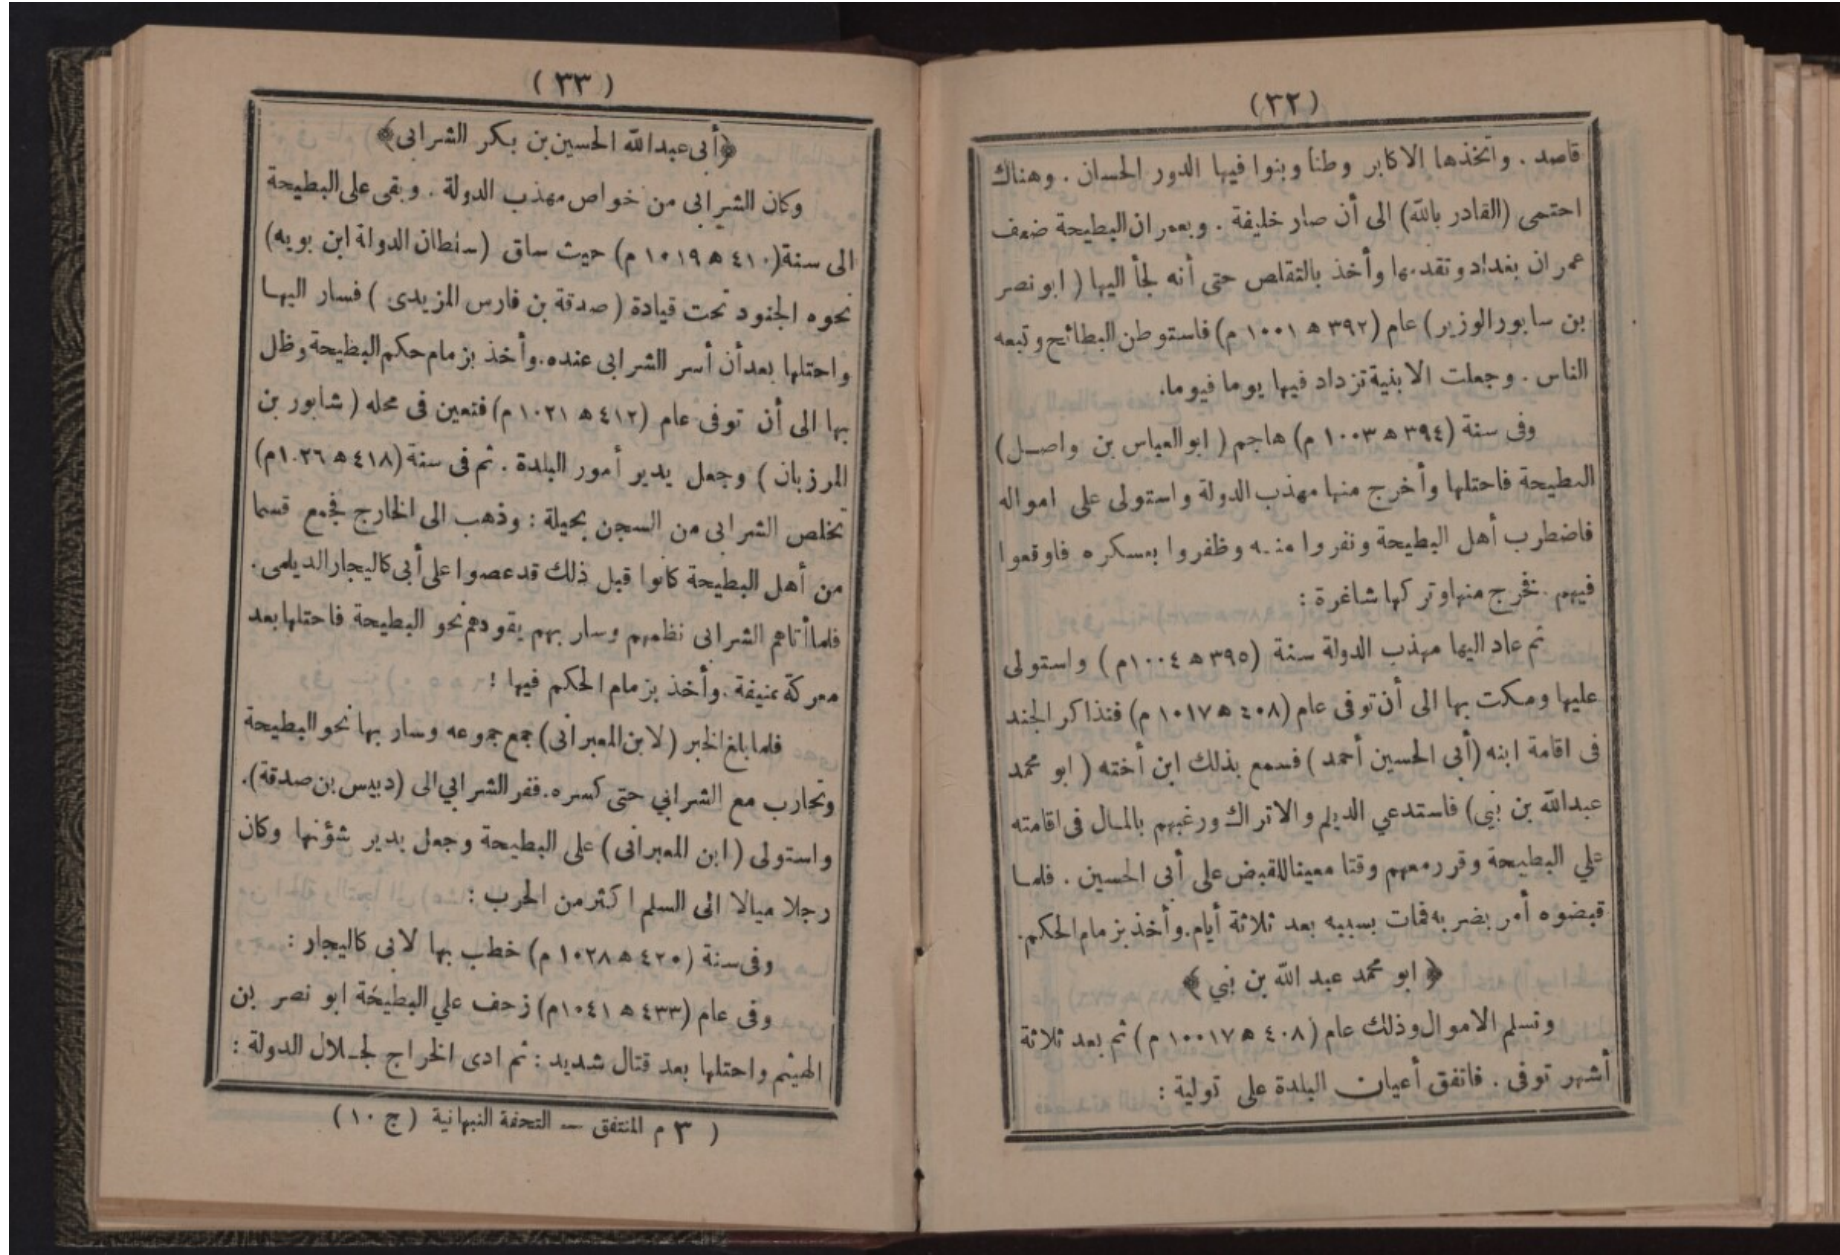 (٣٢)
قاصد . واتخذها الاكابر وطنا وبنوا فيها الدور الحسان . وهناك
احتمى (القادر بالله) الى أن صار خليفة . وبعمران البطيحة ضعف
عمران بغداد وتقدمها وأخذ بالتقلص حتى أنه لجأ اليها ( ابو نصر
بن سابور الوزير) عام (٣٩٢ ه ١٠٠١ م) فاستوطن البطائح وتبعه
الناس . وجعلت الابنية تزداد فيها يوما فيوما.
وفى سنة (٣٩٤ ه ١٠٠٣ م) هاجم ( ابو العباس بن واصل)
البطيحة فاحتلها وأخرج منها مهذب الدولة واستولى على امواله
فاضطرب أهل البطيحة ونفروا منه وظفروا بعسكره فاوقعوا
فيهم . فخرج منها وتركها شاغرة :
ثم عاد اليها مهذب الدولة سنة (٣٩٥ ه ١٠٠٤م ) واستولى
عليها ومكث بها الى أن توفى عام (٤٠٨ ه ١٠١٧ م) فتذاكر الجند
فى اقامة ابنه (أبى الحسين أحمد ) فسمع بذلك ابن أخته ( ابو محمد
عبدالله بن نبي) فاستدعي الديلم والاتراك ورغبهم بالمال فى اقامته
علي البطيحة وقرر معهم وقتا معينا للقبض على أبى الحسين . فلما
قبضوه أمر بضربه فمات بسببه بعد ثلاثة أيام. وأخذ بزمام الحكم.
﴿ ابو محمد عبد الله بن نبي ﴾
وتسلم الاموال وذلك عام (٤٠٨ ه ١٠٠١٧ م ) ثم بعد ثلاثة
أشهر توفى . فاتفق أعيان البلدة على تولية :
(٣٣)
﴿أبى عبدالله الحسين بن بكر الشرابى﴾
وكان الشرابى من خواص مهذب الدولة . وبقى على البطيحة
الى سنة (٤١٠ ه ١٠١٩ م) حيث ساق (سلطان الدولة ابن بويه)
نحوه الجنود تحت قيادة ( صدقة بن فارس المزيدى ) فسار اليها
واحتلها بعد أن أسر الشرابى عنده. وأخذ بزمام حكم البطيحة وظل
بها الى أن توفى عام (٤١٢ ه ١٠٢١ م) فتعين فى محله ( شابور بن
المرزبان ) وجعل يدير أمور البلدة . ثم فى سنة (٤١٨ ه ١٠٢٦م)
تخلص الشرابى من السجن بحيلة : وذهب الى الخارج فجمع قسما
من أهل البطيحة كانوا قبل ذلك قد عصوا على أبى كاليجار الديلمى.
فلما أتاهم الشرابى نظمهم وسار بهم يقودهم نحو البطيحة فاحتلها بعد
معركة عنيفة. وأخذ بزمام الحكم فيها !
فلما بلغ الخبر (لابن المعبرانى) جمع جموعه وسار بها نحو البطيحة
وتحارب مع الشرابي حتى كسره. ففر الشرابي الى (دبيس بن صدقة).
واستولى (ابن المعبرانى) على البطيحة وجعل يدير شؤنها وكان
رجلا ميالا الى السلم اكثر من الحرب :
وفى سنة (٤٢٠ ه ١٠٢٨ م) خطب بها لابى كاليجار :
وفى عام (٤٣٣ ه ١٠٤١م) زحف علي البطيحة ابو نصر بن
الهيثم واحتلها بعد قتال شديد : ثم ادى الخراج لجلال الدولة :
( ٣ م المنتفق — التحفة النبهانية ( ج ١٠ )